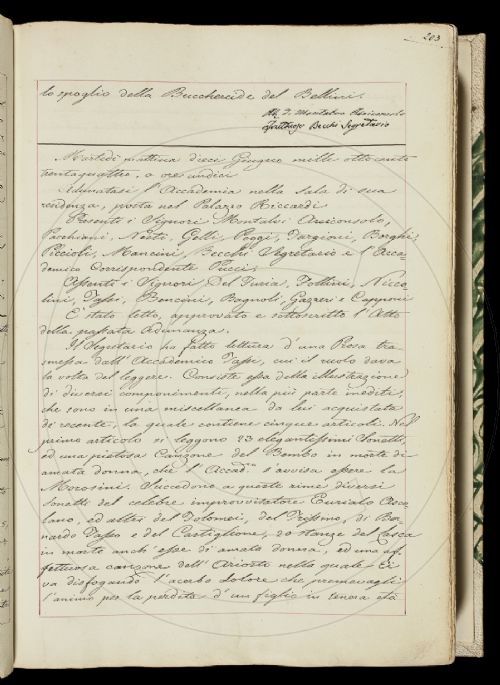 203
lo spoglio della Bucchereide del Bellini.
Ab. G. Montalvi Arciconsolo
Fruttuoso Becchi Segretario
Martedì mattina dieci Giugno mille ottocento
trentaquattro, a ore undici
Adunatasi l'Accademia nella Sala di sua
residenza, posta nel Palazzo Riccardi
Presenti i Signori Montalvi Arciconsolo,
Paschiani, Nesti, Gelli, Poggi, Targioni, Borghi,
Piccioli, Mancini, Becchi Segretario e l'Acca-
demico Corrispondente Pucci.
Assenti i Signori Del Furia, Follini, Nicco-
lini, Tassi, Boncini, Bagnoli, Gazzeri e Capponi
E' stato letto, approvato e sottoscritto l'Atto
della passata Adunanza.
Il Segretario ha fatto lettura d'una Prosa tra-
smessa dall'Accademico Tassi, cui il ruolo dava
la volta del leggere. Consiste essa della illustrazione
di diversi componimenti, nella più parte inediti,
che sono in una miscellanea da lui acquistata
di recente, la quale contiene cinque articoli. Nel
primo articolo si leggono 23 elegantissimi Sonetti,
ed una pietosa Canzone del Bembo in morte di
amata donna, che l'Accad.co s'avvisa essere la
Morosini. Succedono a queste rime diversi
sonetti del celebre improvvisatore Eurialo Asco-
lano, ed altri del Tolomei, del Trissino, di Ber-
nardo Tasso e del Castiglione, 20 stanze del Lasca
in morte anch'esse di amata donna, ed una af-
fettuosa canzone dell'Ariosto nella quale Ei
va disfogando l'acerbo dolore che premevagli
l'animo per la perdita d'un figlio in tenera età